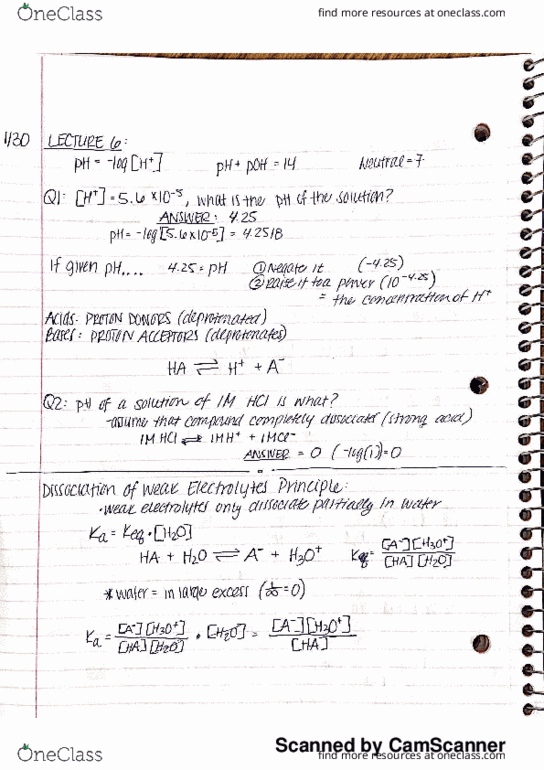 OneClass find more resources at oneclass.com
1/30 LECTURE 6:
pH = -log[H⁺] pH + pOH = 14 Neutral = 7
Q1: [H⁺] = 5.6 × 10⁻⁵, what is the pH of the solution?
ANSWER: 4.25
pH = -log[5.6×10⁻⁵] = 4.2518
If given pH.... 4.25 = pH ① Negate it (-4.25)
② Raise it to a power (10^-4.25)
= the concentration of H⁺
Acids: PROTON DONORS (deprotonated)
Bases: PROTON ACCEPTORS (deprotonates)
HA ⇌ H⁺ + A⁻
Q2: pH of a solution of 1M HCl is what?
-assume that compound completely dissociates (strong acid)
1M HCl ⇌ 1M H⁺ + 1M Cl⁻
ANSWER = 0 (-log(1)) = 0
Dissociation of Weak Electrolytes Principle:
• weak electrolytes only dissociate partially in water
Ka = Keq • [H₂O]
HA + H₂O ⇌ A⁻ + H₃O⁺ Keq = [A⁻][H₃O⁺] / [HA][H₂O]
* water = in large excess (1/∞ = 0)
Ka = [A⁻][H₃O⁺] / [HA][H₂O] • [H₂O] = [A⁻][H₃O⁺] / [HA]
Scanned by CamScanner
OneClass find more resources at oneclass.com